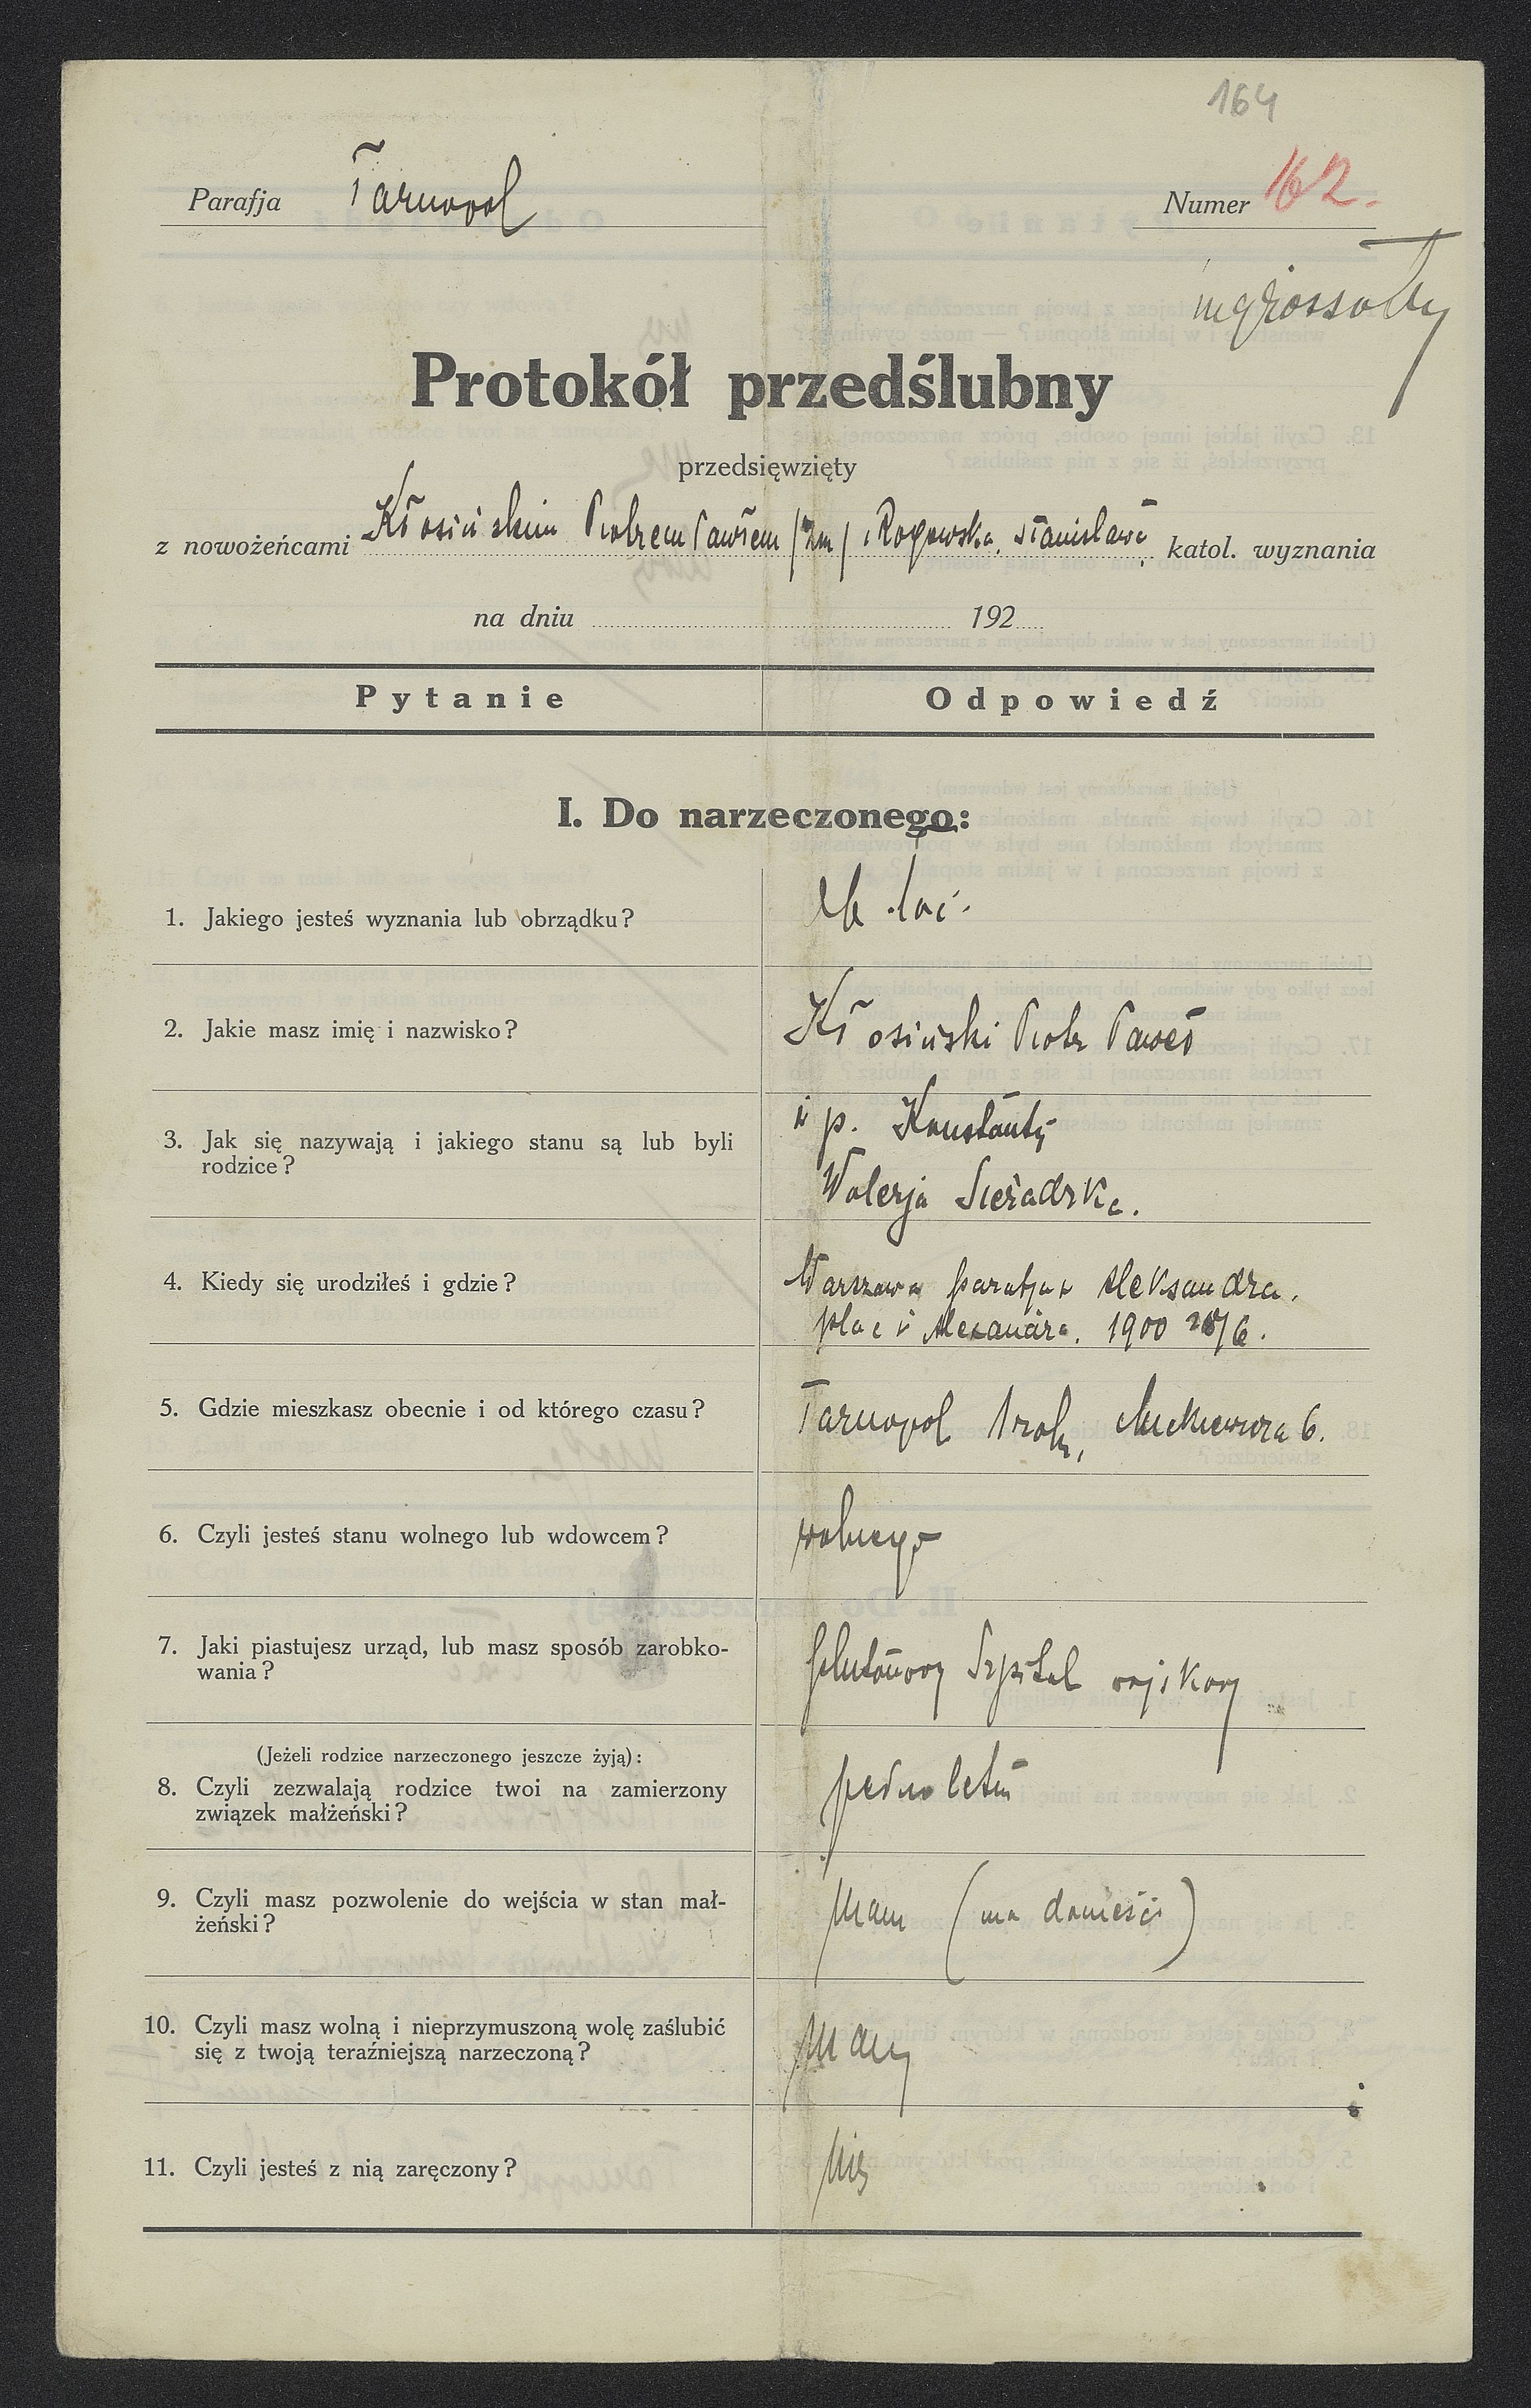 164
Parafja Tarnopol Numer 162.
Protokół przedślubny
przedsięwzięty
z nowożeńcami Kłosińskim Piotrem Pawłem /2im/ i Rogowską Stanisławą katol. wyznania
na dniu 192
Pytanie Odpowiedź
I. Do narzeczonego:
1. Jakiego jesteś wyznania lub obrządku? łac.
2. Jakie masz imię i nazwisko? Kłosiński Piotr Paweł
3. Jak się nazywają i jakiego stanu są lub byli ś p. Konstanty
rodzice? Walerja Sieradzka.
4. Kiedy się urodziłeś i gdzie? Warszawa parafja ś Aleksandra.
plac ś Alexandra. 1900 28/6.
5. Gdzie mieszkasz obecnie i od którego czasu? Tarnopol 1 rok, Mickiewicza 6.
6. Czyli jesteś stanu wolnego lub wdowcem? wolnego
7. Jaki piastujesz urząd, lub masz sposób zarobko-
wania? plutonowy Szpital wojskowy
(Jeżeli rodzice narzeczonego jeszcze żyją):
8. Czyli zezwalają rodzice twoi na zamierzony pełnoletni
związek małżeński?
9. Czyli masz pozwolenie do wejścia w stan mał- mam (ma donieść)
żeński?
10. Czyli masz wolną i nieprzymuszoną wolę zaślubić mam
się z twoją teraźniejszą narzeczoną?
11. Czyli jesteś z nią zaręczony? nie